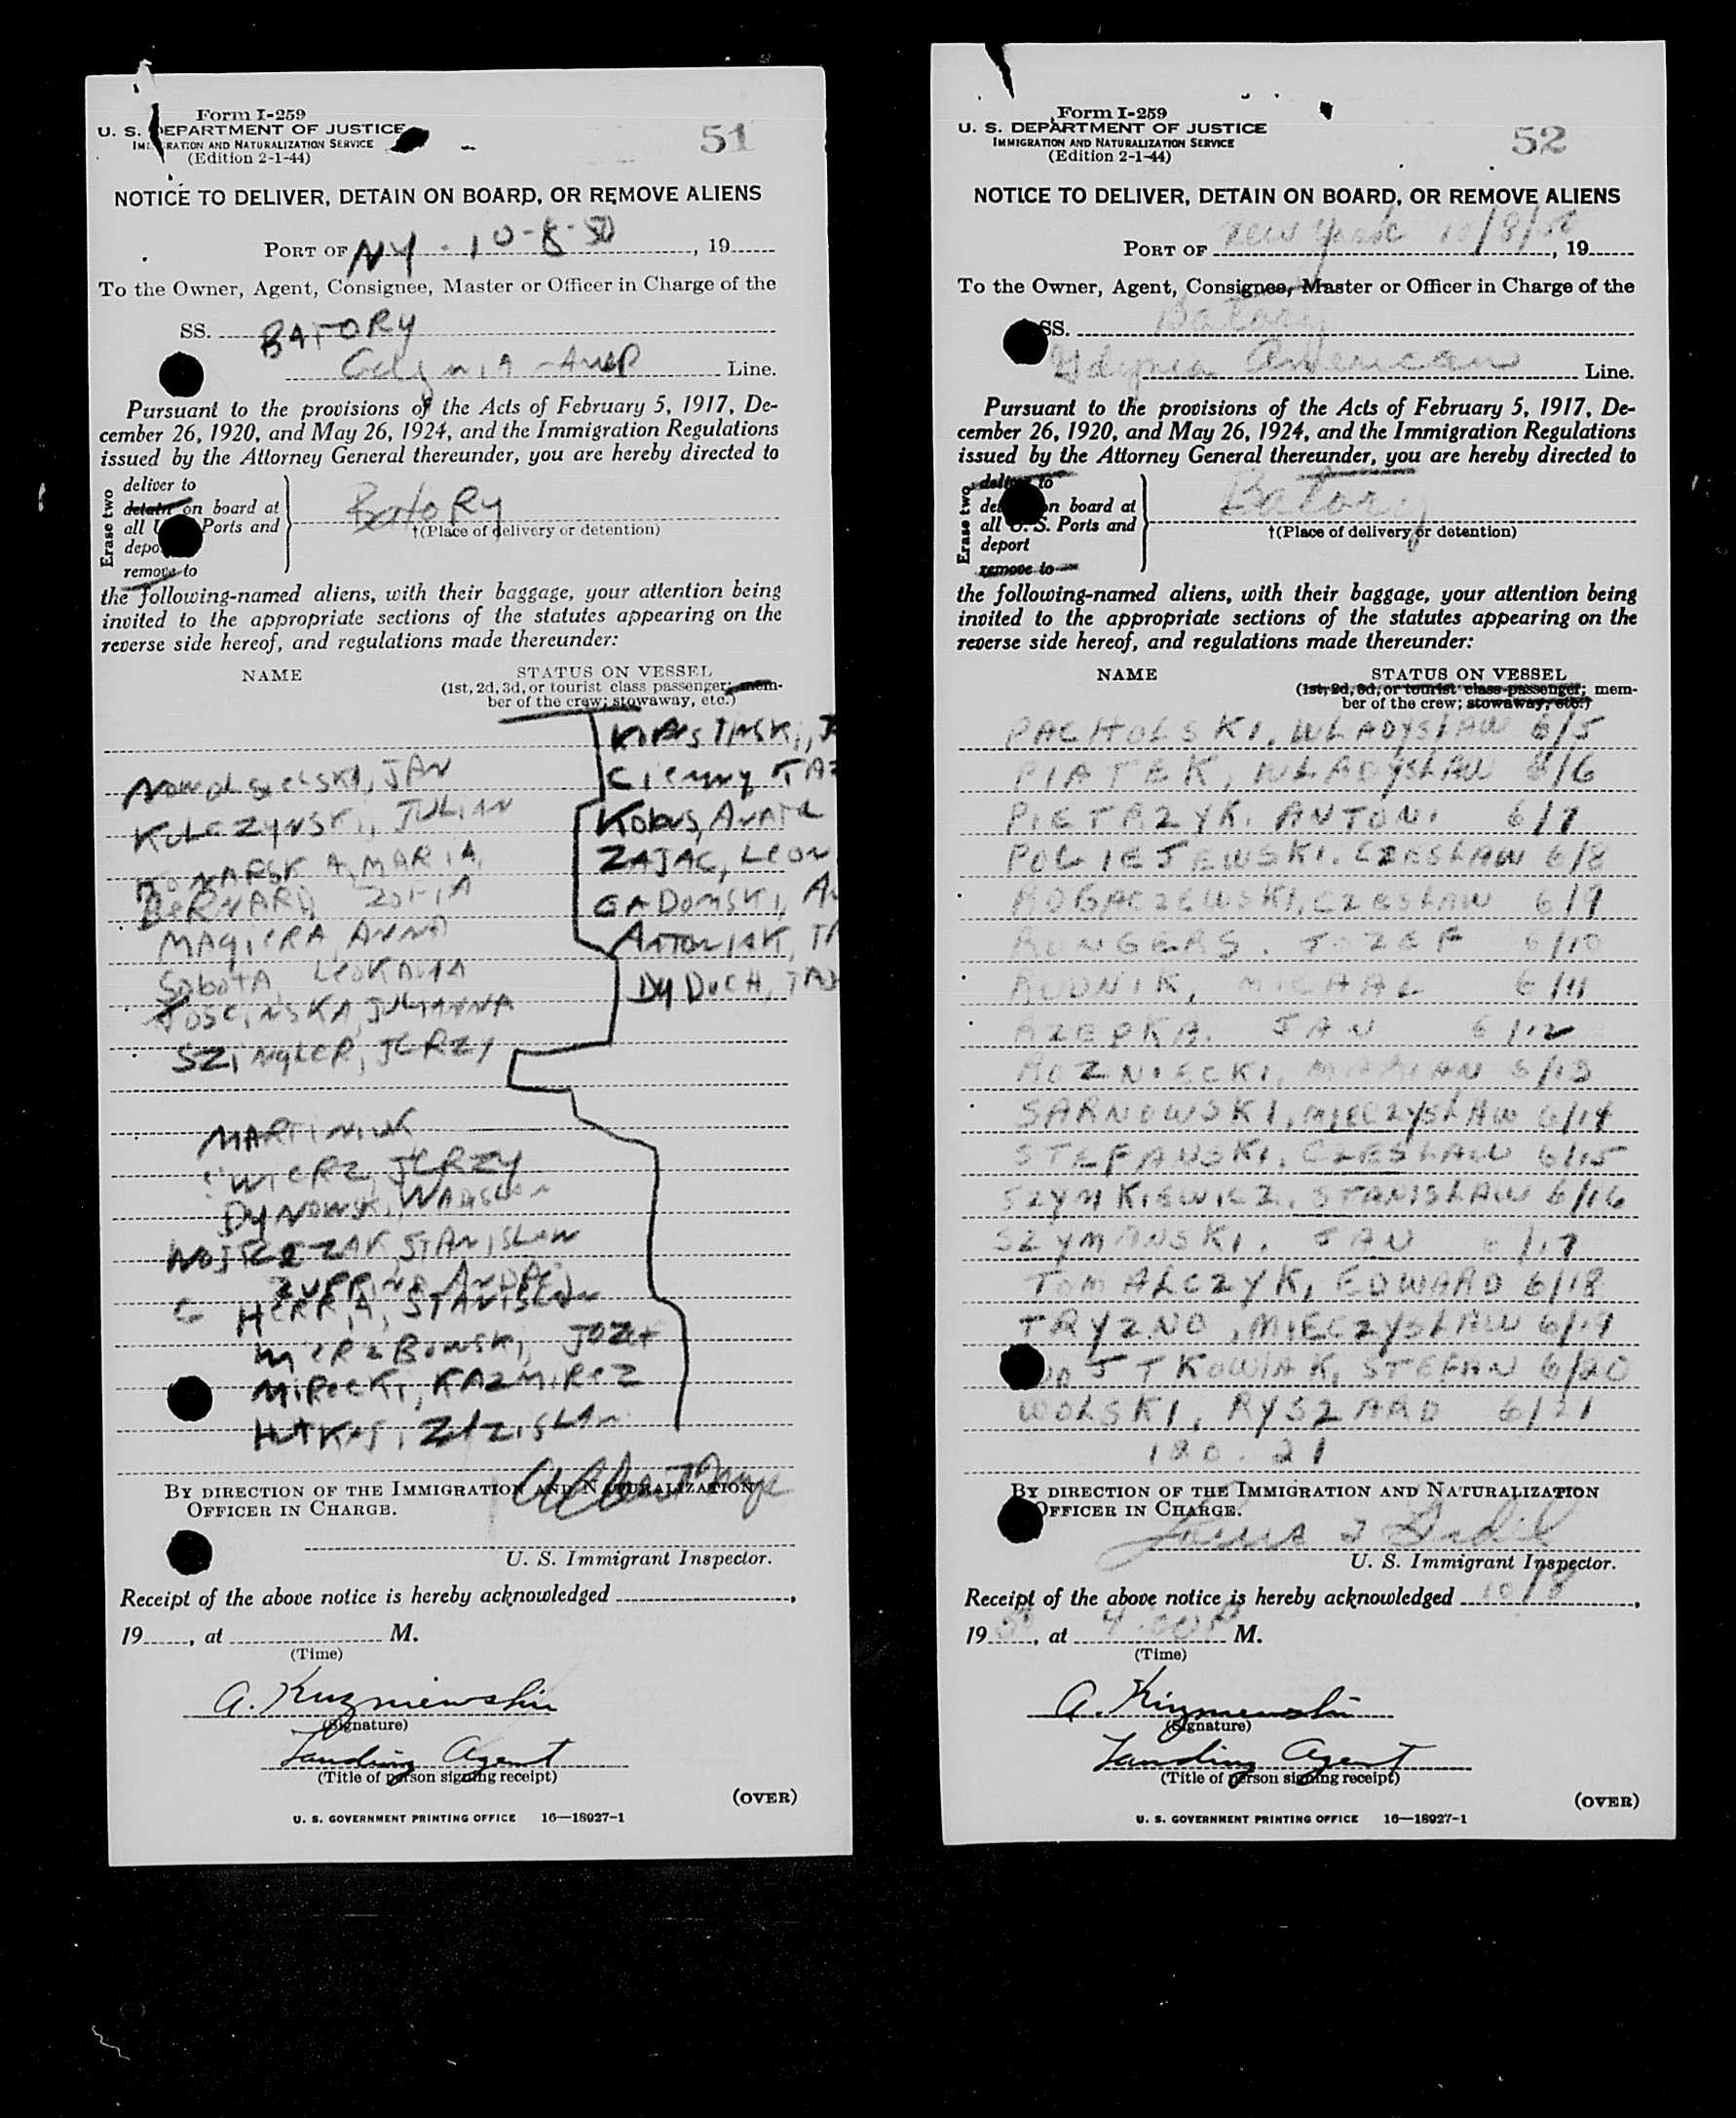 Form I-259
U. S. DEPARTMENT OF JUSTICE
IMMIGRATION AND NATURALIZATION SERVICE
(Edition 2-1-44)
51
NOTICE TO DELIVER, DETAIN ON BOARD, OR REMOVE ALIENS
PORT OF NY - 10-8-50, 19
To the Owner, Agent, Consignee, Master or Officer in Charge of the
SS. BATORY
Gdynia - Amer Line.
Pursuant to the provisions of the Acts of February 5, 1917, De-
cember 26, 1920, and May 26, 1924, and the Immigration Regulations
issued by the Attorney General thereunder, you are hereby directed to
Erase two
deliver to
detain on board at
all U. S. Ports and
deport
remove to
Batory
†(Place of delivery or detention)
the following-named aliens, with their baggage, your attention being
invited to the appropriate sections of the statutes appearing on the
reverse side hereof, and regulations made thereunder:
NAME
STATUS ON VESSEL
(1st, 2d, 3d, or tourist class passenger; mem-
ber of the crew; stowaway, etc.)
JAN
KULCZYNSKI, JULIAN
MARIA,
BERNARD ZOFIA
MAGIERA, ANNA
SobotA, LEOKADIA
JULIANNA
SZINGLER, JERZY
MARTINIUK
JERZY
STANISLAW
STANISLAW
MIERZBOWSKI, JOZEF
MIROCKI, KAZMIREZ
Ciemny
Kobus,
ZAJAC, LEON
GADOMSKI,
DyDUCH,
BY DIRECTION OF THE IMMIGRATION AND NATURALIZATION
OFFICER IN CHARGE.
U. S. Immigrant Inspector.
Receipt of the above notice is hereby acknowledged ,
19 , at M.
(Time)
A. Kuzniewski
(Signature)
Landing Agent
(Title of person signing receipt)
(OVER)
U. S. GOVERNMENT PRINTING OFFICE 16—18927-1
Form I-259
U. S. DEPARTMENT OF JUSTICE
IMMIGRATION AND NATURALIZATION SERVICE
(Edition 2-1-44)
52
NOTICE TO DELIVER, DETAIN ON BOARD, OR REMOVE ALIENS
PORT OF New York 10/8/50, 19
To the Owner, Agent, Consignee, Master or Officer in Charge of the
SS. Batory
Gdynia American Line.
Pursuant to the provisions of the Acts of February 5, 1917, De-
cember 26, 1920, and May 26, 1924, and the Immigration Regulations
issued by the Attorney General thereunder, you are hereby directed to
Erase two
deliver to
detain on board at
all U. S. Ports and
deport
remove to
Batory
†(Place of delivery or detention)
the following-named aliens, with their baggage, your attention being
invited to the appropriate sections of the statutes appearing on the
reverse side hereof, and regulations made thereunder:
NAME
STATUS ON VESSEL
(1st, 2d, 3d, or tourist class passenger; mem-
ber of the crew; stowaway, etc.)
PACHOLSKI, WŁADYSŁAW 6/5
PIATEK, WŁADYSŁAW 6/6
PIETRZYK, ANTONI 6/7
POLIEJEWSKI, CZESŁAW 6/8
ROGACZEWSKI, CZESŁAW 6/9
RUNGERS, JOZEF 6/10
RUDNIK, MICHAŁ 6/11
RZEPKA, JAN 6/12
ROZNIECKI, MARIAN 6/13
SARNOWSKI, MIECZYSŁAW 6/14
STEFANSKI, CZESŁAW 6/15
SZYMKIEWICZ, STANISŁAW 6/16
SZYMANSKI, JAN 6/17
TOMALCZYK, EDWARD 6/18
TRYZNO, MIECZYSŁAW 6/19
WOJTKOWIAK, STEFAN 6/20
WOLSKI, RYSZARD 6/21
BY DIRECTION OF THE IMMIGRATION AND NATURALIZATION
OFFICER IN CHARGE.
U. S. Immigrant Inspector.
Receipt of the above notice is hereby acknowledged 10/8,
1950, at 4:00 P M.
(Time)
A. Kuzniewski
(Signature)
Landing Agent
(Title of person signing receipt)
(OVER)
U. S. GOVERNMENT PRINTING OFFICE 16—18927-1